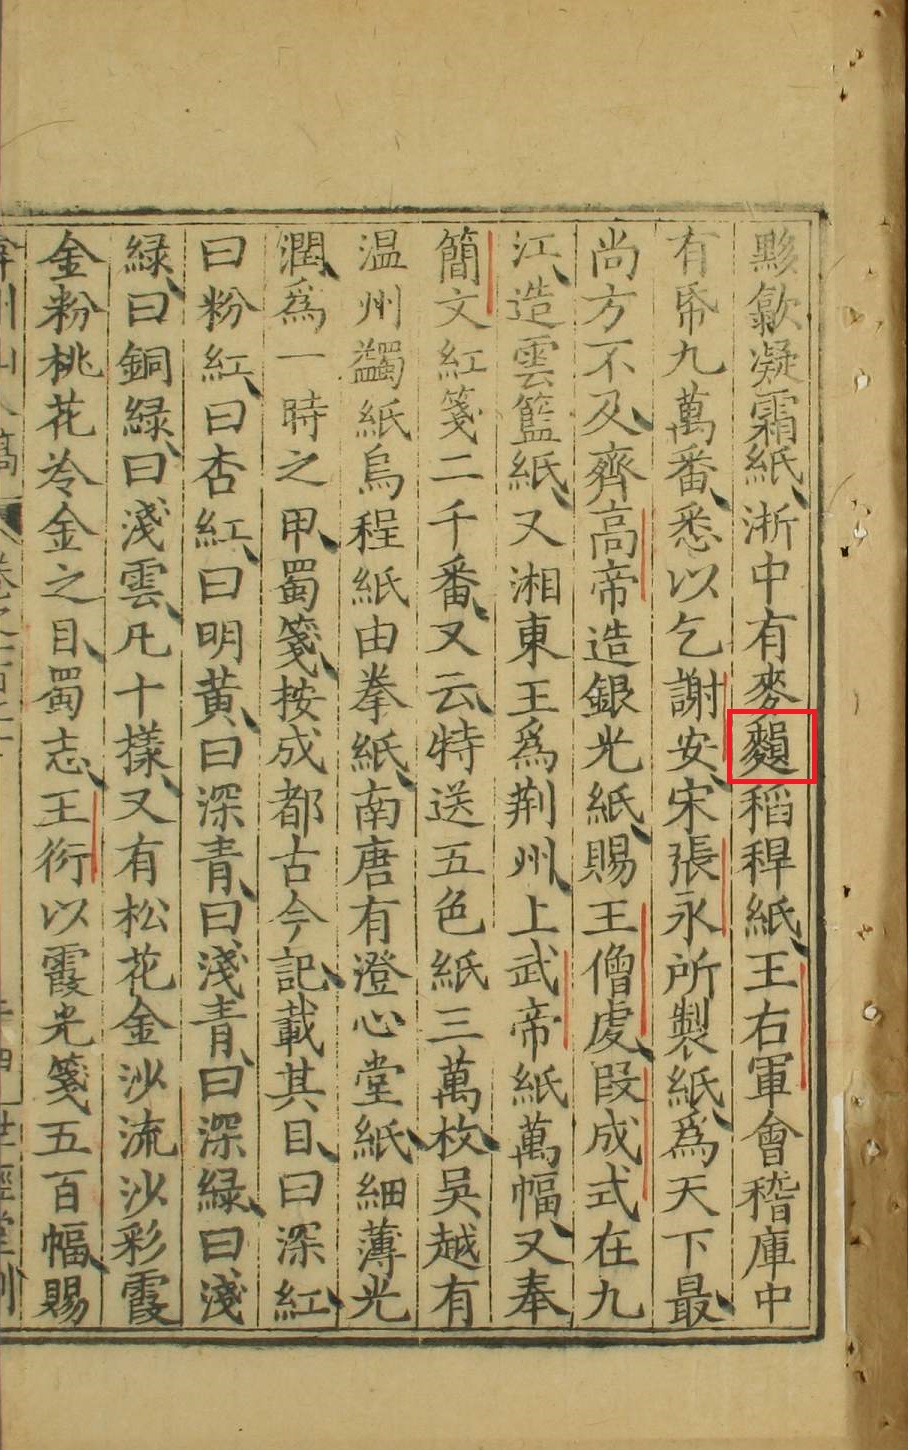 黟歙凝霜紙浙中有麥稻稈紙王右軍會稽庫中
有帋九萬番悉以乞謝安宋張永所製紙爲天下最
尚方不及齊高帝造銀光紙賜王僧虔段成式在九
江造雲籃紙又湘東王爲荆州上武帝紙萬幅又奉
簡文紅箋二千番又云特送五色紙三萬枚吳越有
温州蠲紙烏程紙由拳紙南唐有澄心堂紙細薄光
潤爲一時之甲蜀箋按成都古今記載其目曰深紅
曰粉紅曰杏紅曰明黃曰深青曰淺青曰深綠曰淺
綠曰銅綠曰淺雲凡十樣又有松花金沙流沙彩霞
金粉桃花冷金之目蜀志王衍以霞光箋五百幅賜